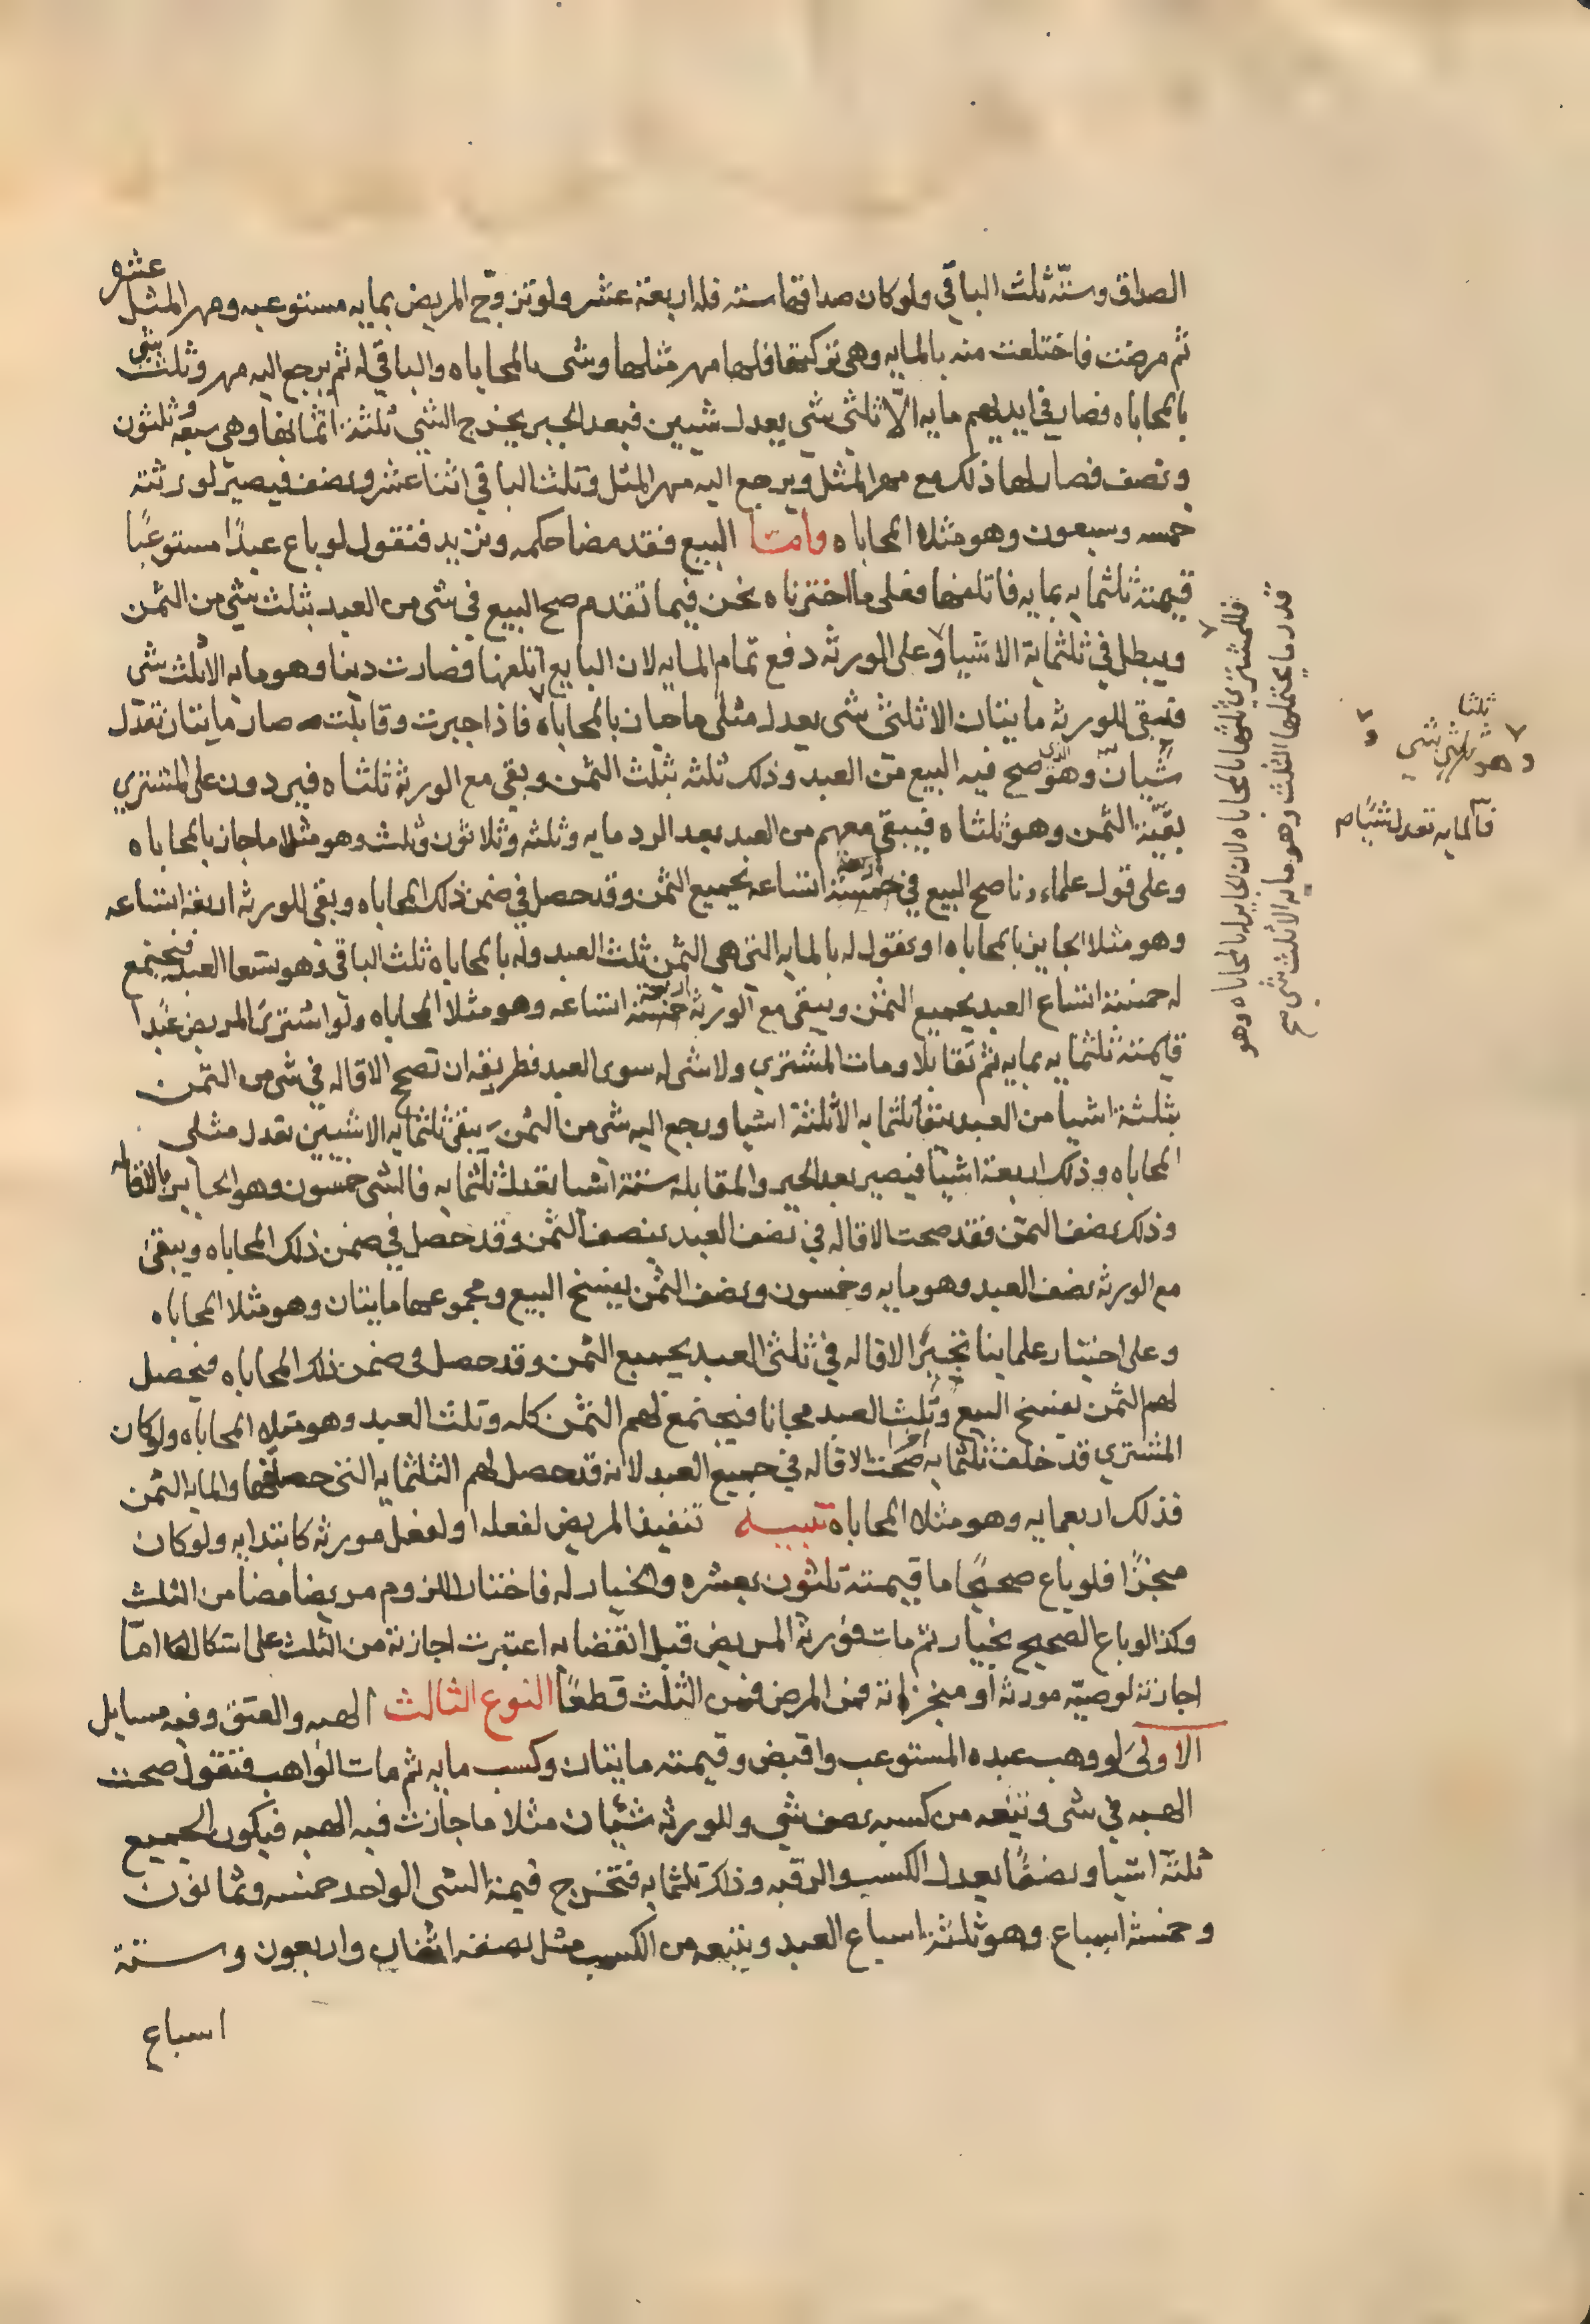 الصداق وستة ثلث الباقي ولو كان صداقها ستة فله اربعة عشر ولو تزوج المريض بمايه مستوعبه ومهر المثل عشره
ثم مرضت فاختلعت منه بالمايه وهي تركتها فلها مهر مثلها وشي بالمحاباه والباقي له ثم يرجع اليه مهر وثلث شي
بالمحاباه فصار في ايديهم مايه الا ثلثي شي يعدل شيين فبعد الجبر يخرج الشي ثلثة اثمانها وهي سبعه وثلثون
ونصف فصار لها ذلك مع مهر المثل ويرجع اليه مهر المثل وثلث الباقي اثنا عشر ونصف فيصير لورثته
خمسه وسبعون وهو مثلا المحاباه واما البيع فقد مضا حكمه ونزيد فنقول لو باع عبدا مستوعبا
قيمته ثلثمايه بمايه فاتلفها فعلى ما اخترناه نحن فيما تقدم صح البيع في شي من العبد بثلث شي من الثمن
ويبطل في ثلثماية الا شيا وعلى الورثه دفع تمام المايه لان البايع اتلفها فصارت دينا وهو مايه الا ثلث شي
فتبقى للورثه مايتان الا ثلثي شي يعدل مثلي ما حابان بالمحاباه فاذا جبرت وقابلت صار مايتان تعدل
شيان وهو الذي صح فيه البيع من العبد وذلك ثلثه بثلث الثمن وبقي مع الورثه ثلثاه فيردون على المشتري
بقية الثمن وهو ثلثاه فيبقى معهم من العبد بعد الرد مايه وثلثه وثلاثون وثلث وهو مثلا ما جاز بالمحاباه
وعلى قول علماءنا صح البيع في خمسة اتساعه بجميع الثمن وقد حصل في ضمن ذلك المحاباه وبقي للورثه اربعة اتساعه
وهو مثلا الجايز بالمحاباه او نقول له بالمايه التي هي الثمن ثلث العبد وله بالمحاباه ثلث الباقي وهو تسعا العبد فتجتمع
له خمسة اتساع العبد بجميع الثمن ويبقى مع الورثه اربعة اتساعه وهو مثلا المحاباه ولو اشترى المريض عبدا
قيمته ثلثمايه بمايه ثم تقايلا ومات المشتري ولا شي له سوى العبد فطريقه ان تصح الاقاله في شي من الثمن
بثلثة اشيا من العبد يبقا ثلثمايه الا ثلثة اشيا ورجع اليه شي من الثمن يبقى ثلثمايه الا شيين تعدل مثلي
المحاباه وذلك اربعة اشيا فيصير بعد الجبر والمقابله ستة اشيا تعدل ثلثمايه فالشي خمسون وهو الجايز بالاقاله
وذلك نصف الثمن فقد صحت الاقاله في نصف العبد بنصف الثمن وقد حصل في ضمن ذلك المحاباه ويبقى
مع الورثه نصف العبد وهو مايه وخمسون ونصف الثمن بفسخ البيع ومجموعها مايتان وهو مثلا المحاباه
وعلى اختيار علماينا تخير الاقاله في ثلثي العبد بجميع الثمن وقد حصل في ضمن ذلك المحاباه فيحصل
لهم الثمن بفسخ البيع وثلث العبد مجانا فيجتمع لهم الثمن كله وثلث العبد وهو مثلا المحاباه ولو كان
المشتري قد خلف ثلثمايه اخرى صحت الاقاله في جميع العبد لانه قد حصل لهم الثلثمايه التي خلفها والمايه الثمن
فذلك اربعمايه وهو مثلا المحاباه تنبيه تنفيذ المريض لفعله او لفعل مورثه كابتدايه ولو كان
منجزا فلو باع صحيحا ما قيمته ثلثون بعشره والخيار له فاختار اللزوم مريضا مضا من الثلث
وكذا لو باع الصحيح بخيار ثم مات فورثه المريض قبل انقضايه اعتبرت اجازته من الثلث على اشكالها اما
اجازته لوصية مورثه او منجزاته في المرض فمن الثلث قطعا النوع الثالث الهبه والعتق وفيه مسايل
الاولى لو وهب عبده المستوعب واقبض وقيمته مايتان وكسب مايه ثم مات الواهب فنقول صحت
الهبه في شي وتتبعه من كسبه نصف شي وللورثه شيان مثلا ما جازت فيه الهبه فيكون الجميع
ثلثة اشيا ونصفا يعدل الكسب والرقبه وذلك ثلثمايه فتخرج قيمة الشي الواحد خمسه وثمانون
وخمسة اسباع وهو ثلثة اسباع العبد ويتبعه من الكسب مثل نصفه اثنان واربعون وستة
اسباع
فللمشتري ثلثها بالمحاباه لان الجايز بالمحاباه وهو
قدر ما يحتملها الثلث وهو مايه الا ثلث شي صح
ثلثا
وهو ثلثي شي
فالمايه تعدل شيا